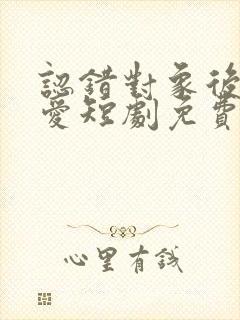 認錯對象後
愛短劇免費
心里有錢